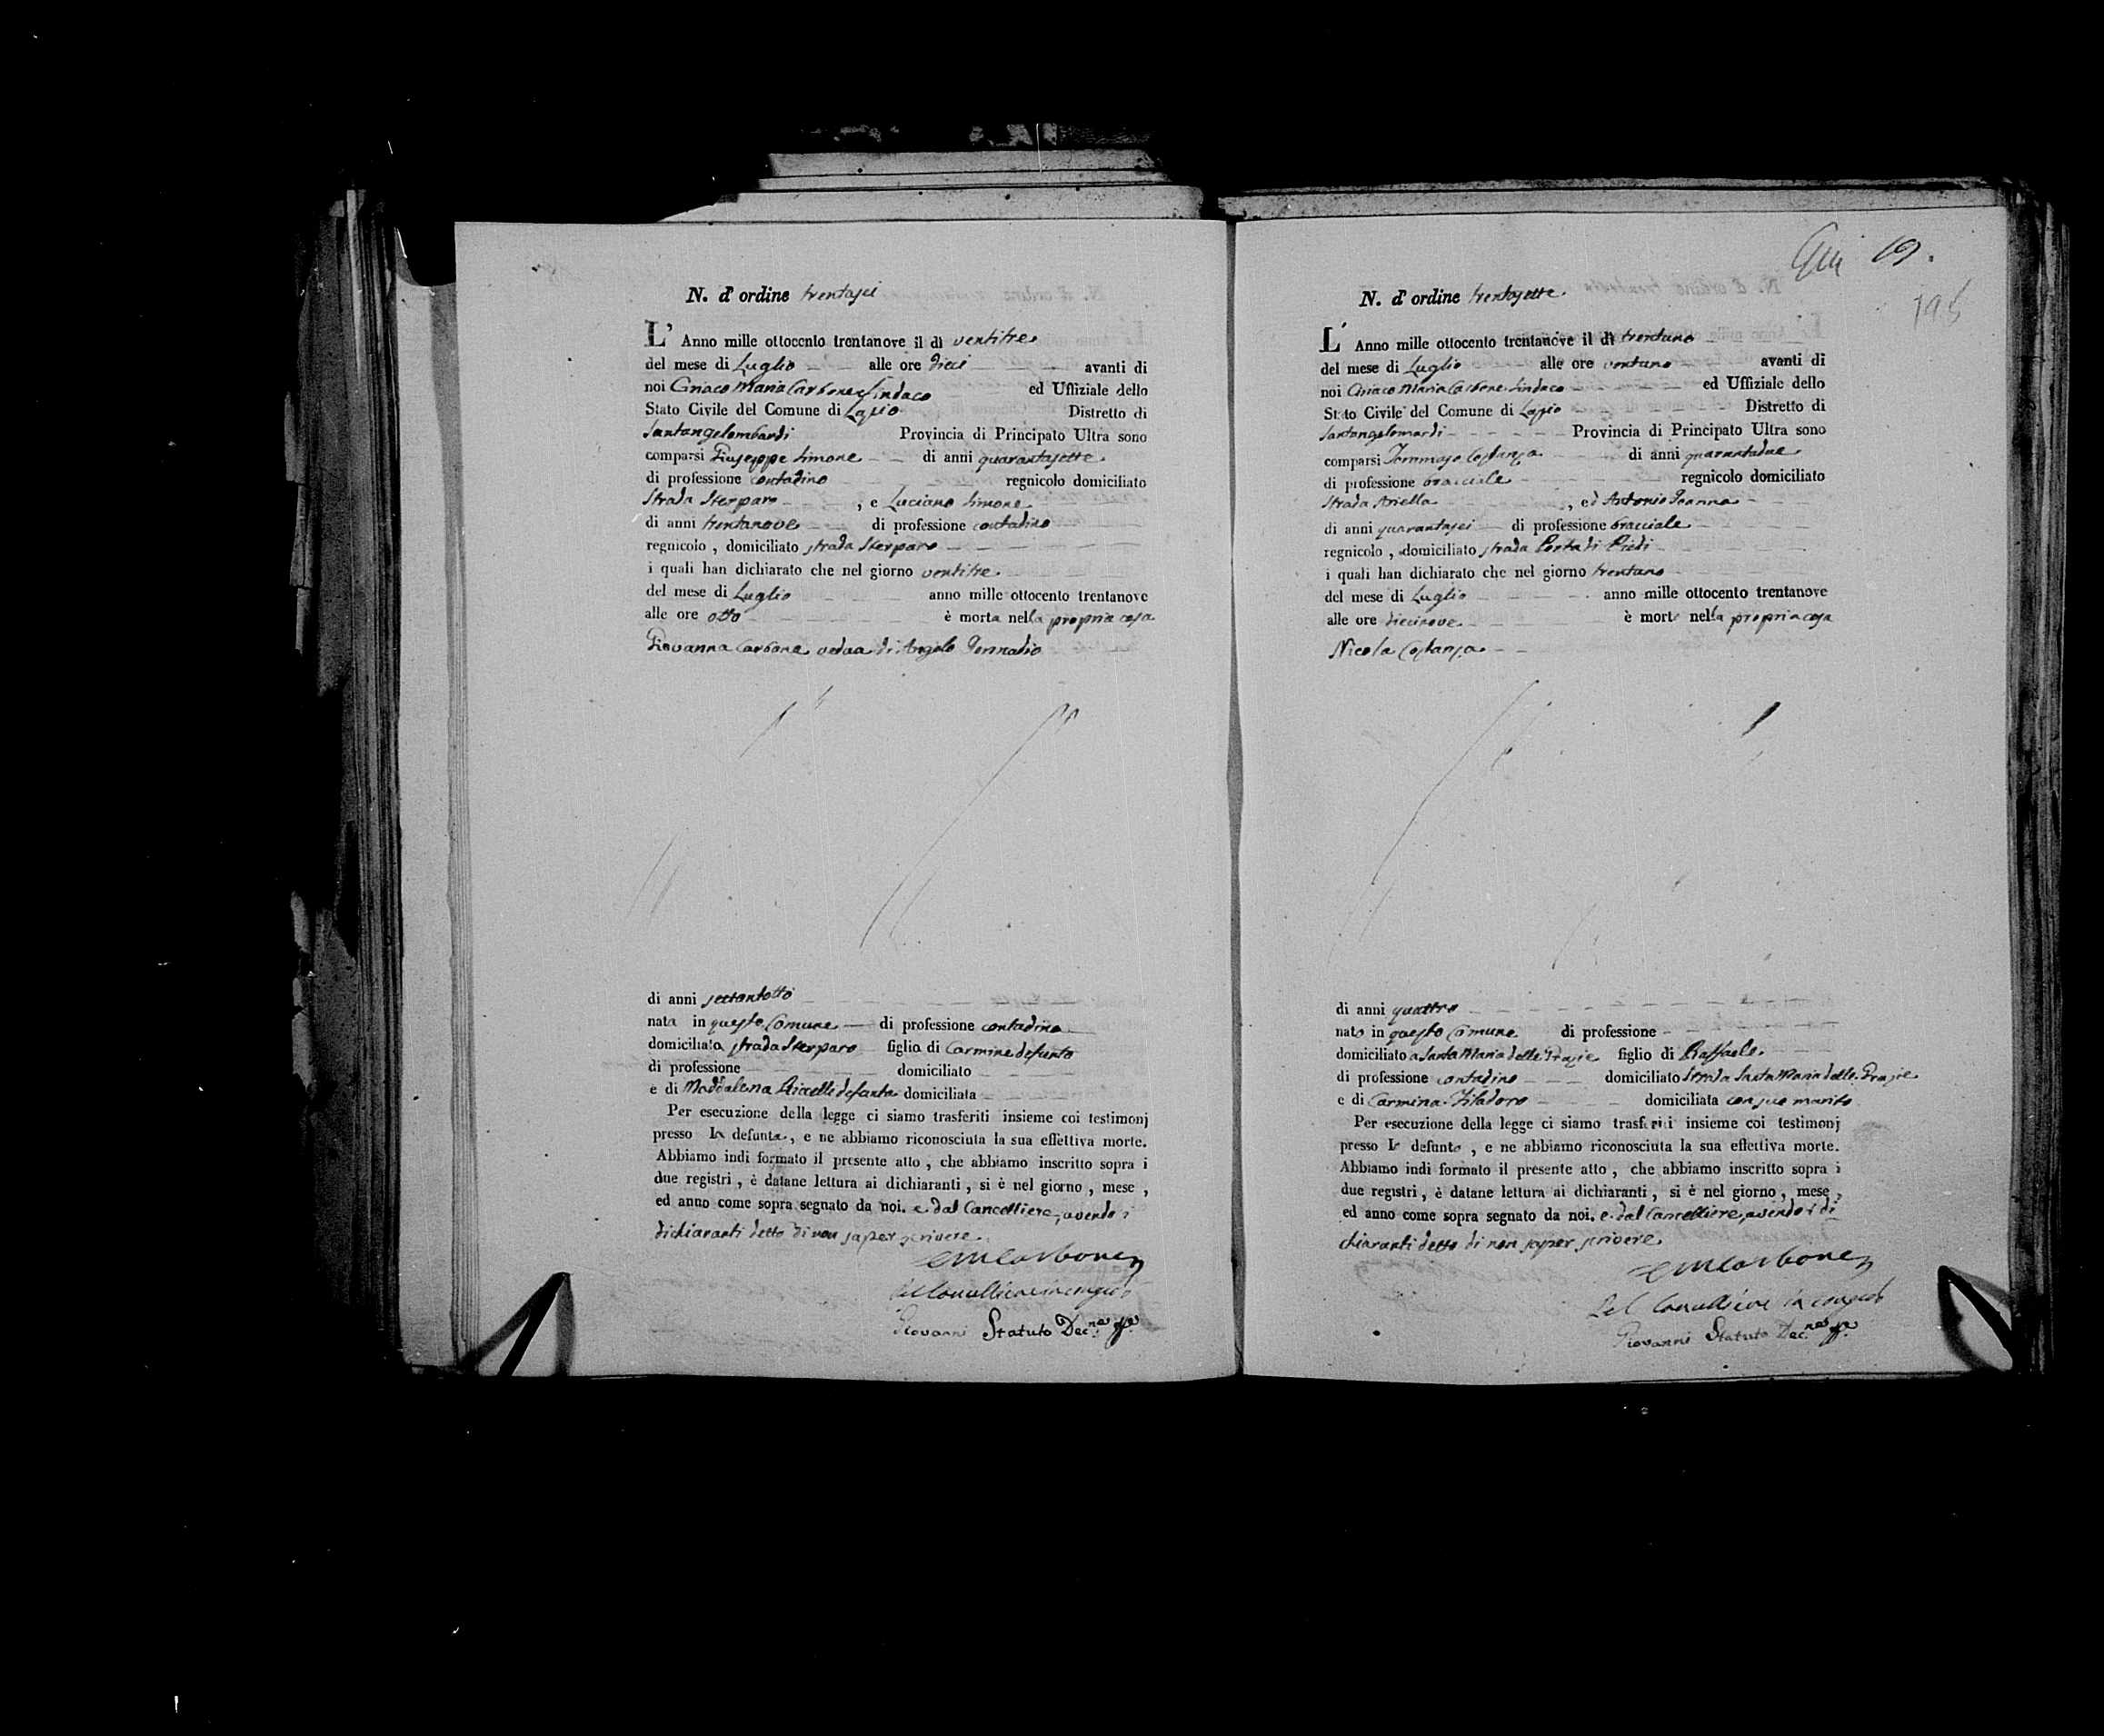 N. d' ordine trentasei
L' Anno mille ottocento trentanove il dì ventitre
del mese di Luglio alle ore dieci avanti di
noi Ciriaco Maria Carbone Sindaco ed Uffiziale dello
Stato Civile del Comune di Lapio Distretto di
Santangelombardi Provincia di Principato Ultra sono
comparsi Giuseppe Simone di anni quarantasette
di professione contadino regnicolo domiciliato
Strada Sterparo , e Luciano Simone
di anni trentanove di professione contadino
regnicolo , domiciliato strada Sterparo
i quali han dichiarato che nel giorno ventitre
del mese di Luglio anno mille ottocento trentanove
alle ore otto è morta nella propria casa
Giovanna Carbone vedua di Angelo
di anni settantotto
nata in questo Comune di professione contadina
domiciliata strada Sterparo figlia di Carmine defunto
di professione domiciliato
e di Maddalena defunta domiciliata
Per esecuzione della legge ci siamo trasferiti insieme coi testimonj
presso la defunta , e ne abbiamo riconosciuta la sua effettiva morte.
Abbiamo indi formato il presente atto , che abbiamo inscritto sopra i
due registri , è datane lettura ai dichiaranti , si è nel giorno , mese ,
ed anno come sopra segnato da noi. e dal Cancelliere, avendo i
dichiaranti detto di non saper scrivere
CMCarbone
Pel Cancelliere in congedo
Giovanni Statuto Dec.ne
19.
195
N. d' ordine trentasette
L' Anno mille ottocento trentanove il dì trentuno
del mese di Luglio alle ore ventuno avanti di
noi Ciriaco Maria Carbone Sindaco ed Uffiziale dello
Stato Civile del Comune di Lapio Distretto di
Santangelomardi Provincia di Principato Ultra sono
comparsi Tommaso Costanza di anni quarantadue
di professione bracciale regnicolo domiciliato
Strada Ariella , ed Antonio
di anni quarantasei di professione bracciale
regnicolo , domiciliato strada Porta di Piedi
i quali han dichiarato che nel giorno trentuno
del mese di Luglio anno mille ottocento trentanove
alle ore diecinove è morto nella propria casa
Nicola Costanza
di anni quattro
nato in questo Comune di professione
domiciliato a Santa Maria delle Grazie figlio di Raffaele
di professione contadino domiciliato Strada Santa Maria delle Grazie
e di Carmina Filadoro domiciliata con suo marito
Per esecuzione della legge ci siamo trasferiti insieme coi testimonj
presso lo defunto , e ne abbiamo riconosciuta la sua effettiva morte.
Abbiamo indi formato il presente atto , che abbiamo inscritto sopra i
due registri , è datane lettura ai dichiaranti , si è nel giorno , mese ,
ed anno come sopra segnato da noi. e dal Cancelliere, avendo i di
chiaranti detto di non saper scrivere
CMCarbone
Pel Cancelliere in congedo
Giovanni Statuto Dec.ne